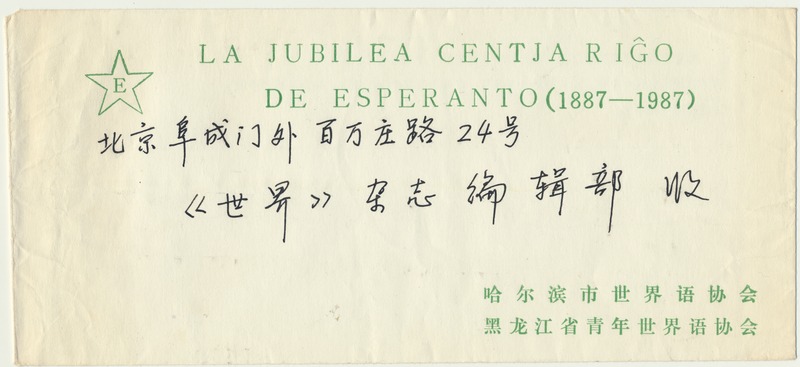 E
LA JUBILEA CENTJARIĜO
DE ESPERANTO (1887—1987)
北京阜成门外百万庄路24号
《世界》杂志编辑部 收
哈尔滨市世界语协会
黑龙江省青年世界语协会